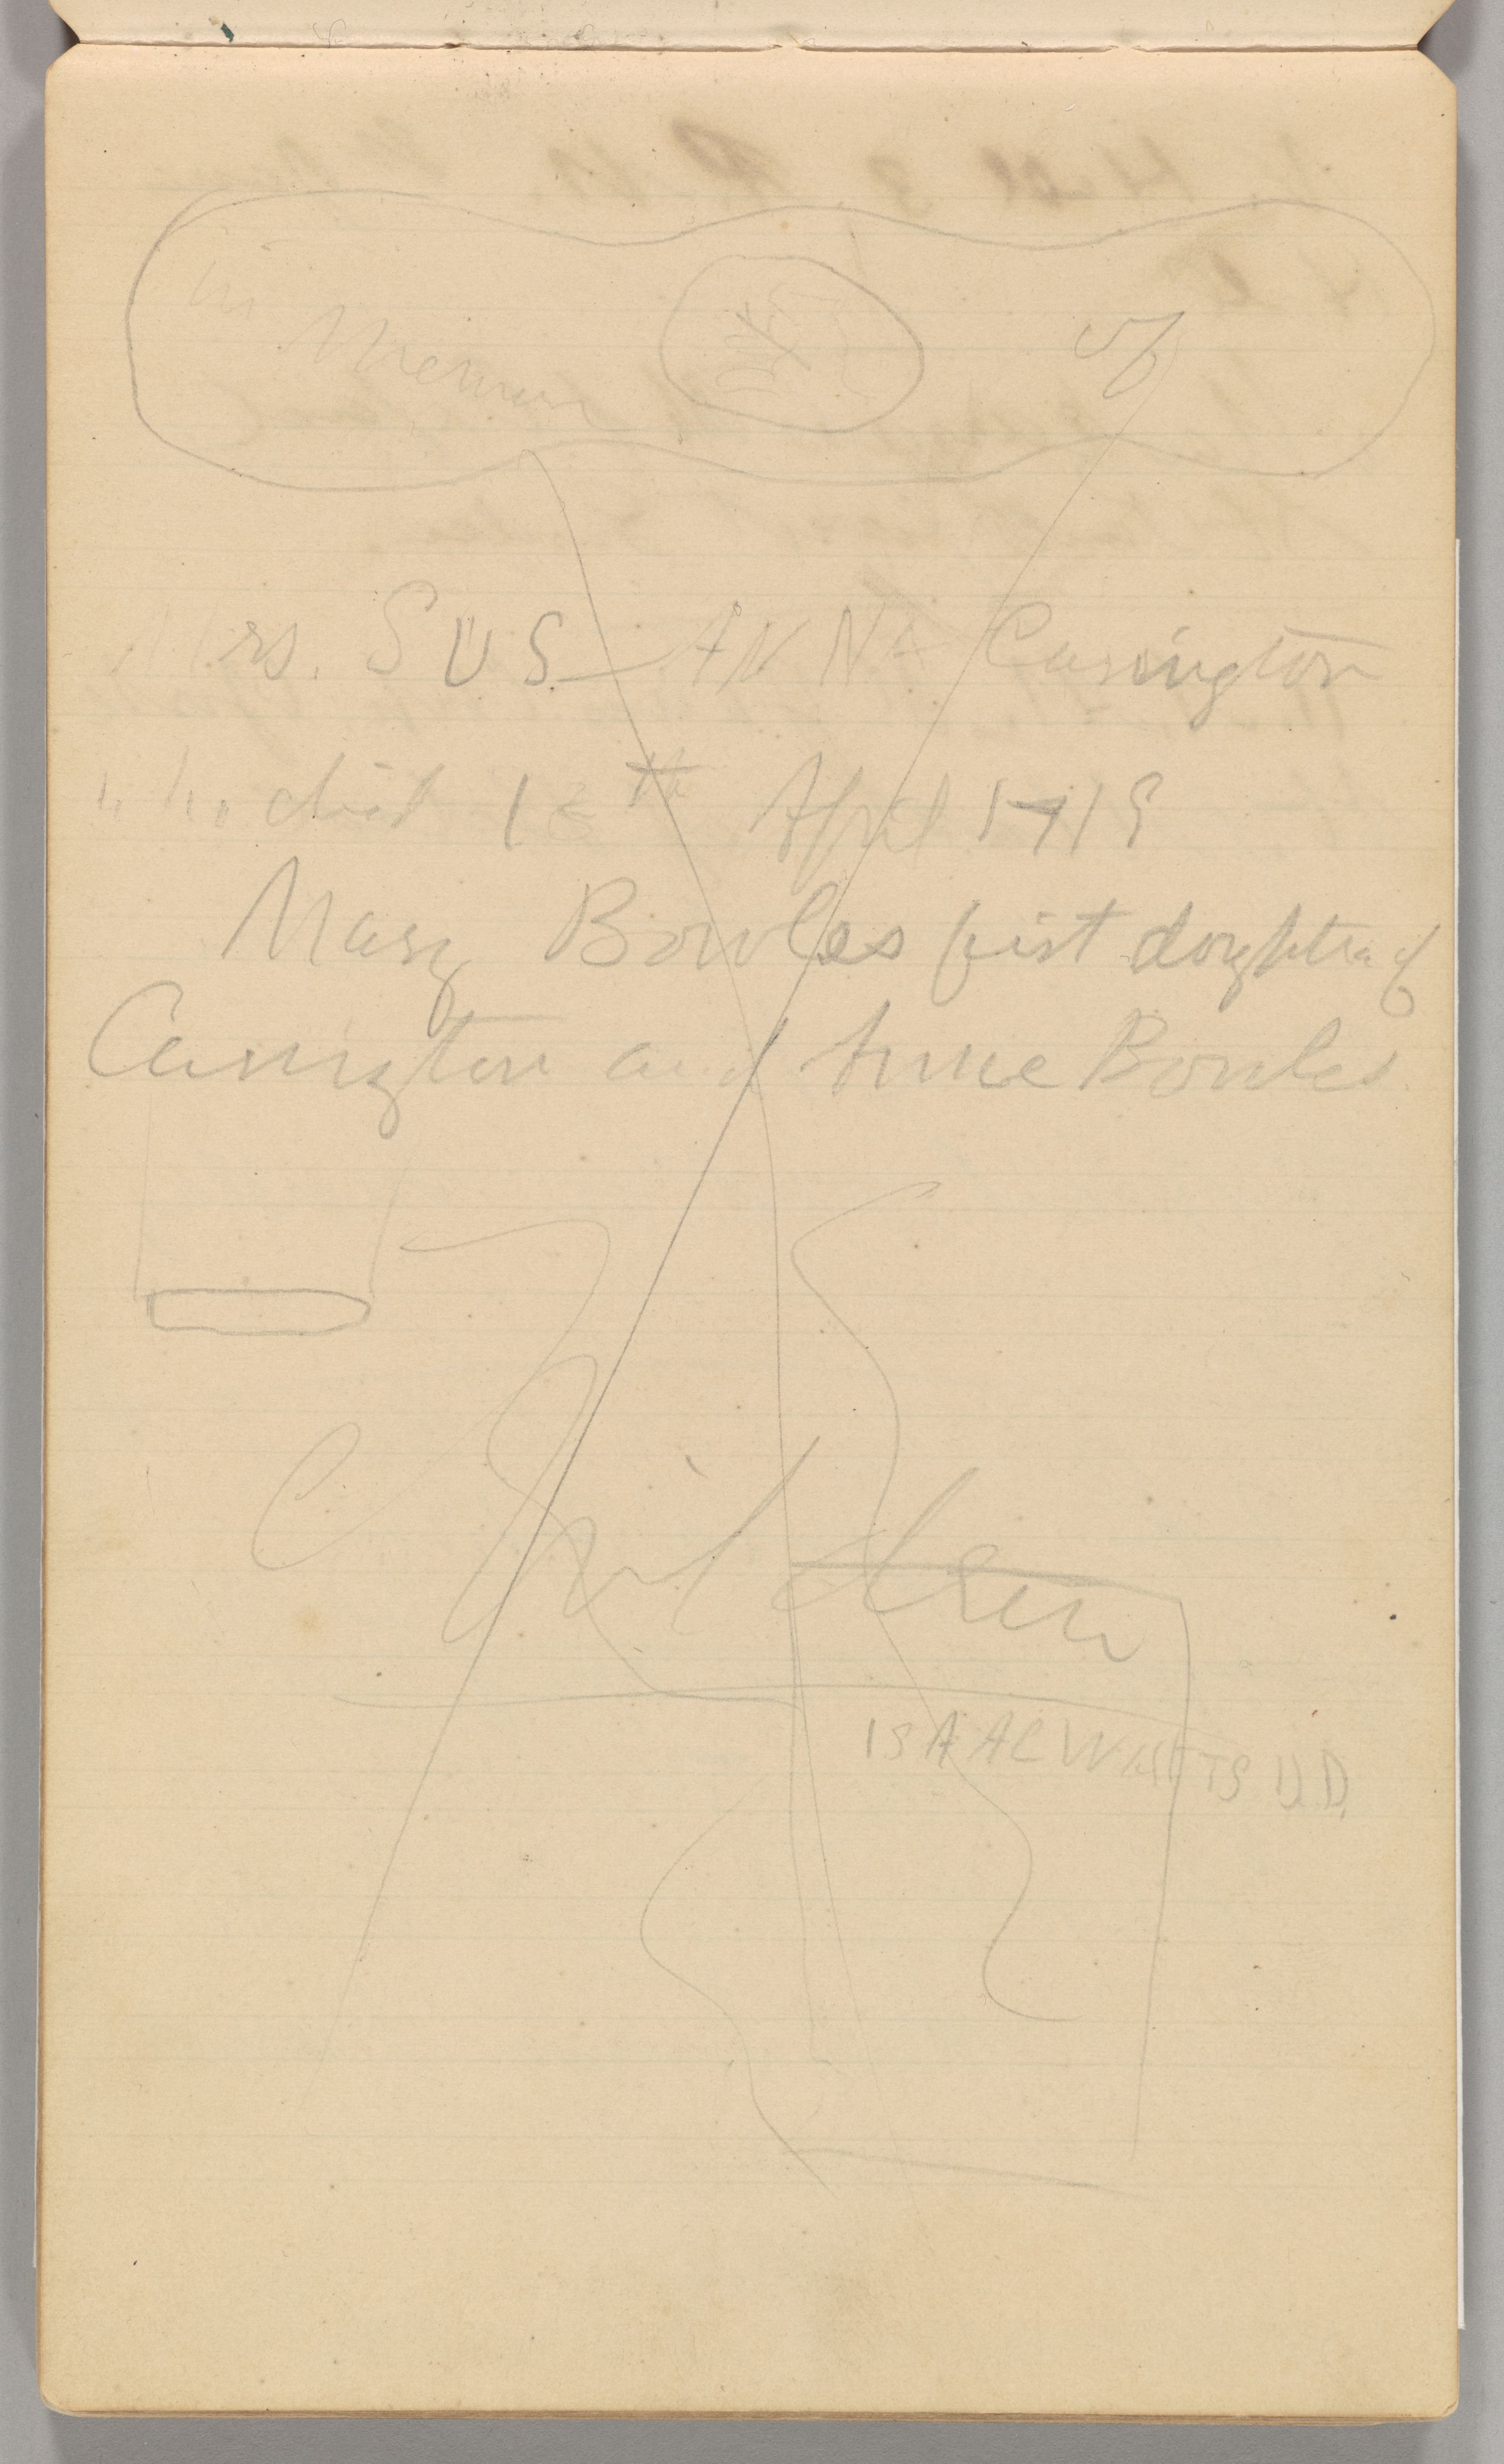 in Memory of
Mrs. SUS-ANNA Casington
who died 18th April 1719
Mary Bowles first doughter of
Casington and Anne Bowles
Children
ISAAC WATTS D.D.